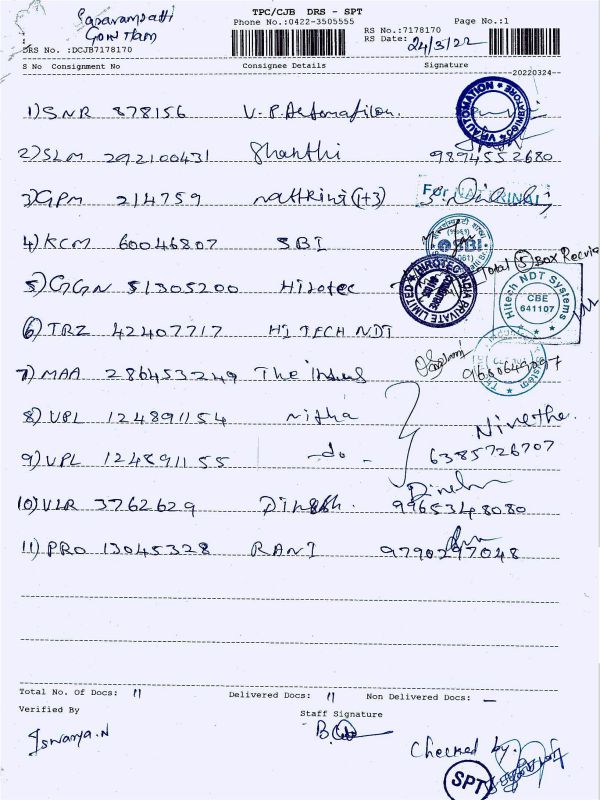 Saravampatti
Gowtham
TPC/CJB DRS - SPT
Phone No.:0422-3505555
Page No.:1
RS No.:7178170
RS Date: 24/3/22
DRS No. :DCJB7178170
S No Consignment No Consignee Details Signature
20220324
1) SNR 878156 V.P. Automation.
VP AUTOMATION
2) SLM 292100431 Shanthi 9894552680
3) GPM 214759 (1+3)
For
4) KCM 60046807 SBI
SBI
Total 5 Box
5) GGN 51305200 Hirotec
HIROTEC INDIA PRIVATE LIMITED
Hitech NDT Systems
CBE
641107
6) TRZ 42407717 HI TECH NDT
7) MAA 286453249 The Indus
8) VPL 124891154 nitha
Nivetha.
9) VPL 124891155 -do- 6385726707
Dinesh
10) VLR 3762629 Dinesh. 9965348080
11) PRO 13045328 RANI 9790297048
Total No. Of Docs: 11 Delivered Docs: 11 Non Delivered Docs: —
Verified By Staff Signature
Iswarya.N
Checked by.
SPT